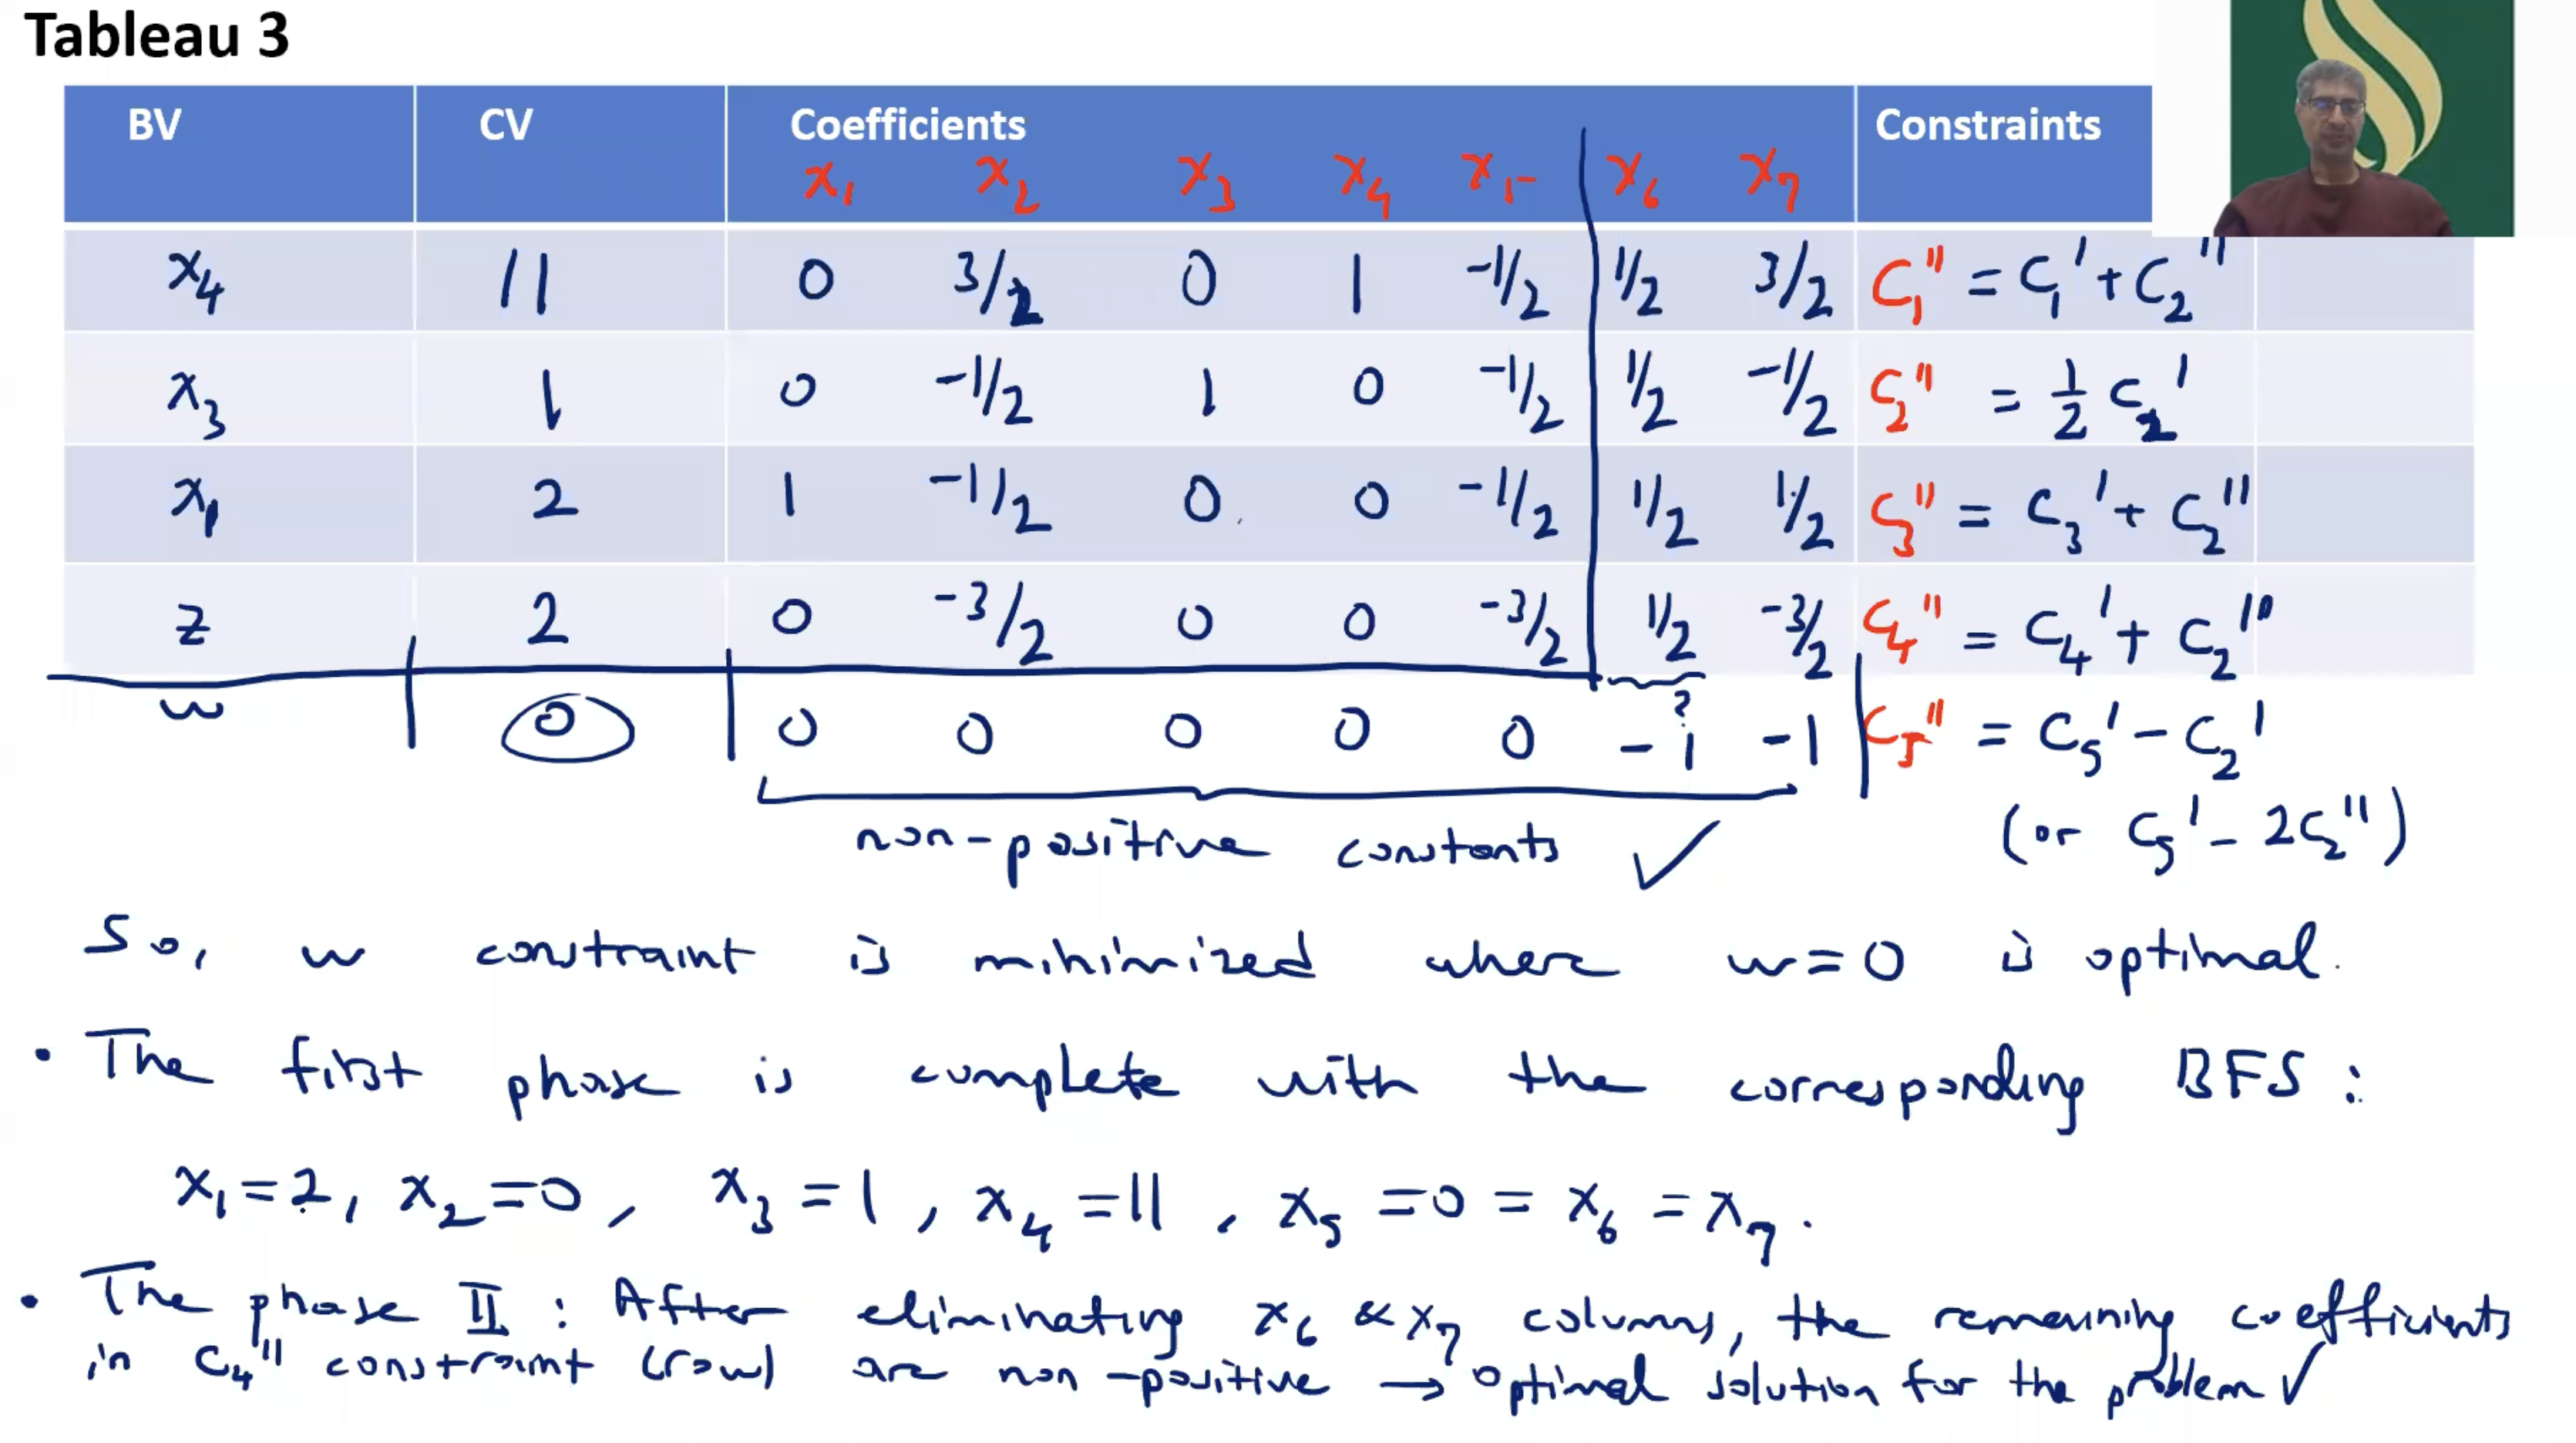 Tableau 3
BV CV Coefficients Constraints
x₁ x₂ x₃ x₄ x₅ x₆ x₇
x₄ 11 0 3/2 0 1 -1/2 1/2 3/2 C₁'' = C₁' + C₂''
x₃ 1 0 -1/2 1 0 -1/2 1/2 -1/2 C₂'' = 1/2 C₂'
x₁ 2 1 -1/2 0 0 -1/2 1/2 1/2 C₃'' = C₃' + C₂''
z 2 0 -3/2 0 0 -3/2 1/2 -3/2 C₄'' = C₄' + C₂''
w 0 0 0 0 0 0 -1 -1 C₅'' = C₅' - C₂'
?
non-positive constants ✓ (or C₅' - 2C₂'')
So, w constraint is minimized where w=0 is optimal.
• The first phase is complete with the corresponding BFS :
x₁=2, x₂=0, x₃=1, x₄=11, x₅=0=x₆=x₇.
• The phase II : After eliminating x₆ & x₇ columns, the remaining coefficients
in C₄'' constraint (row) are non-positive → optimal solution for the problem ✓